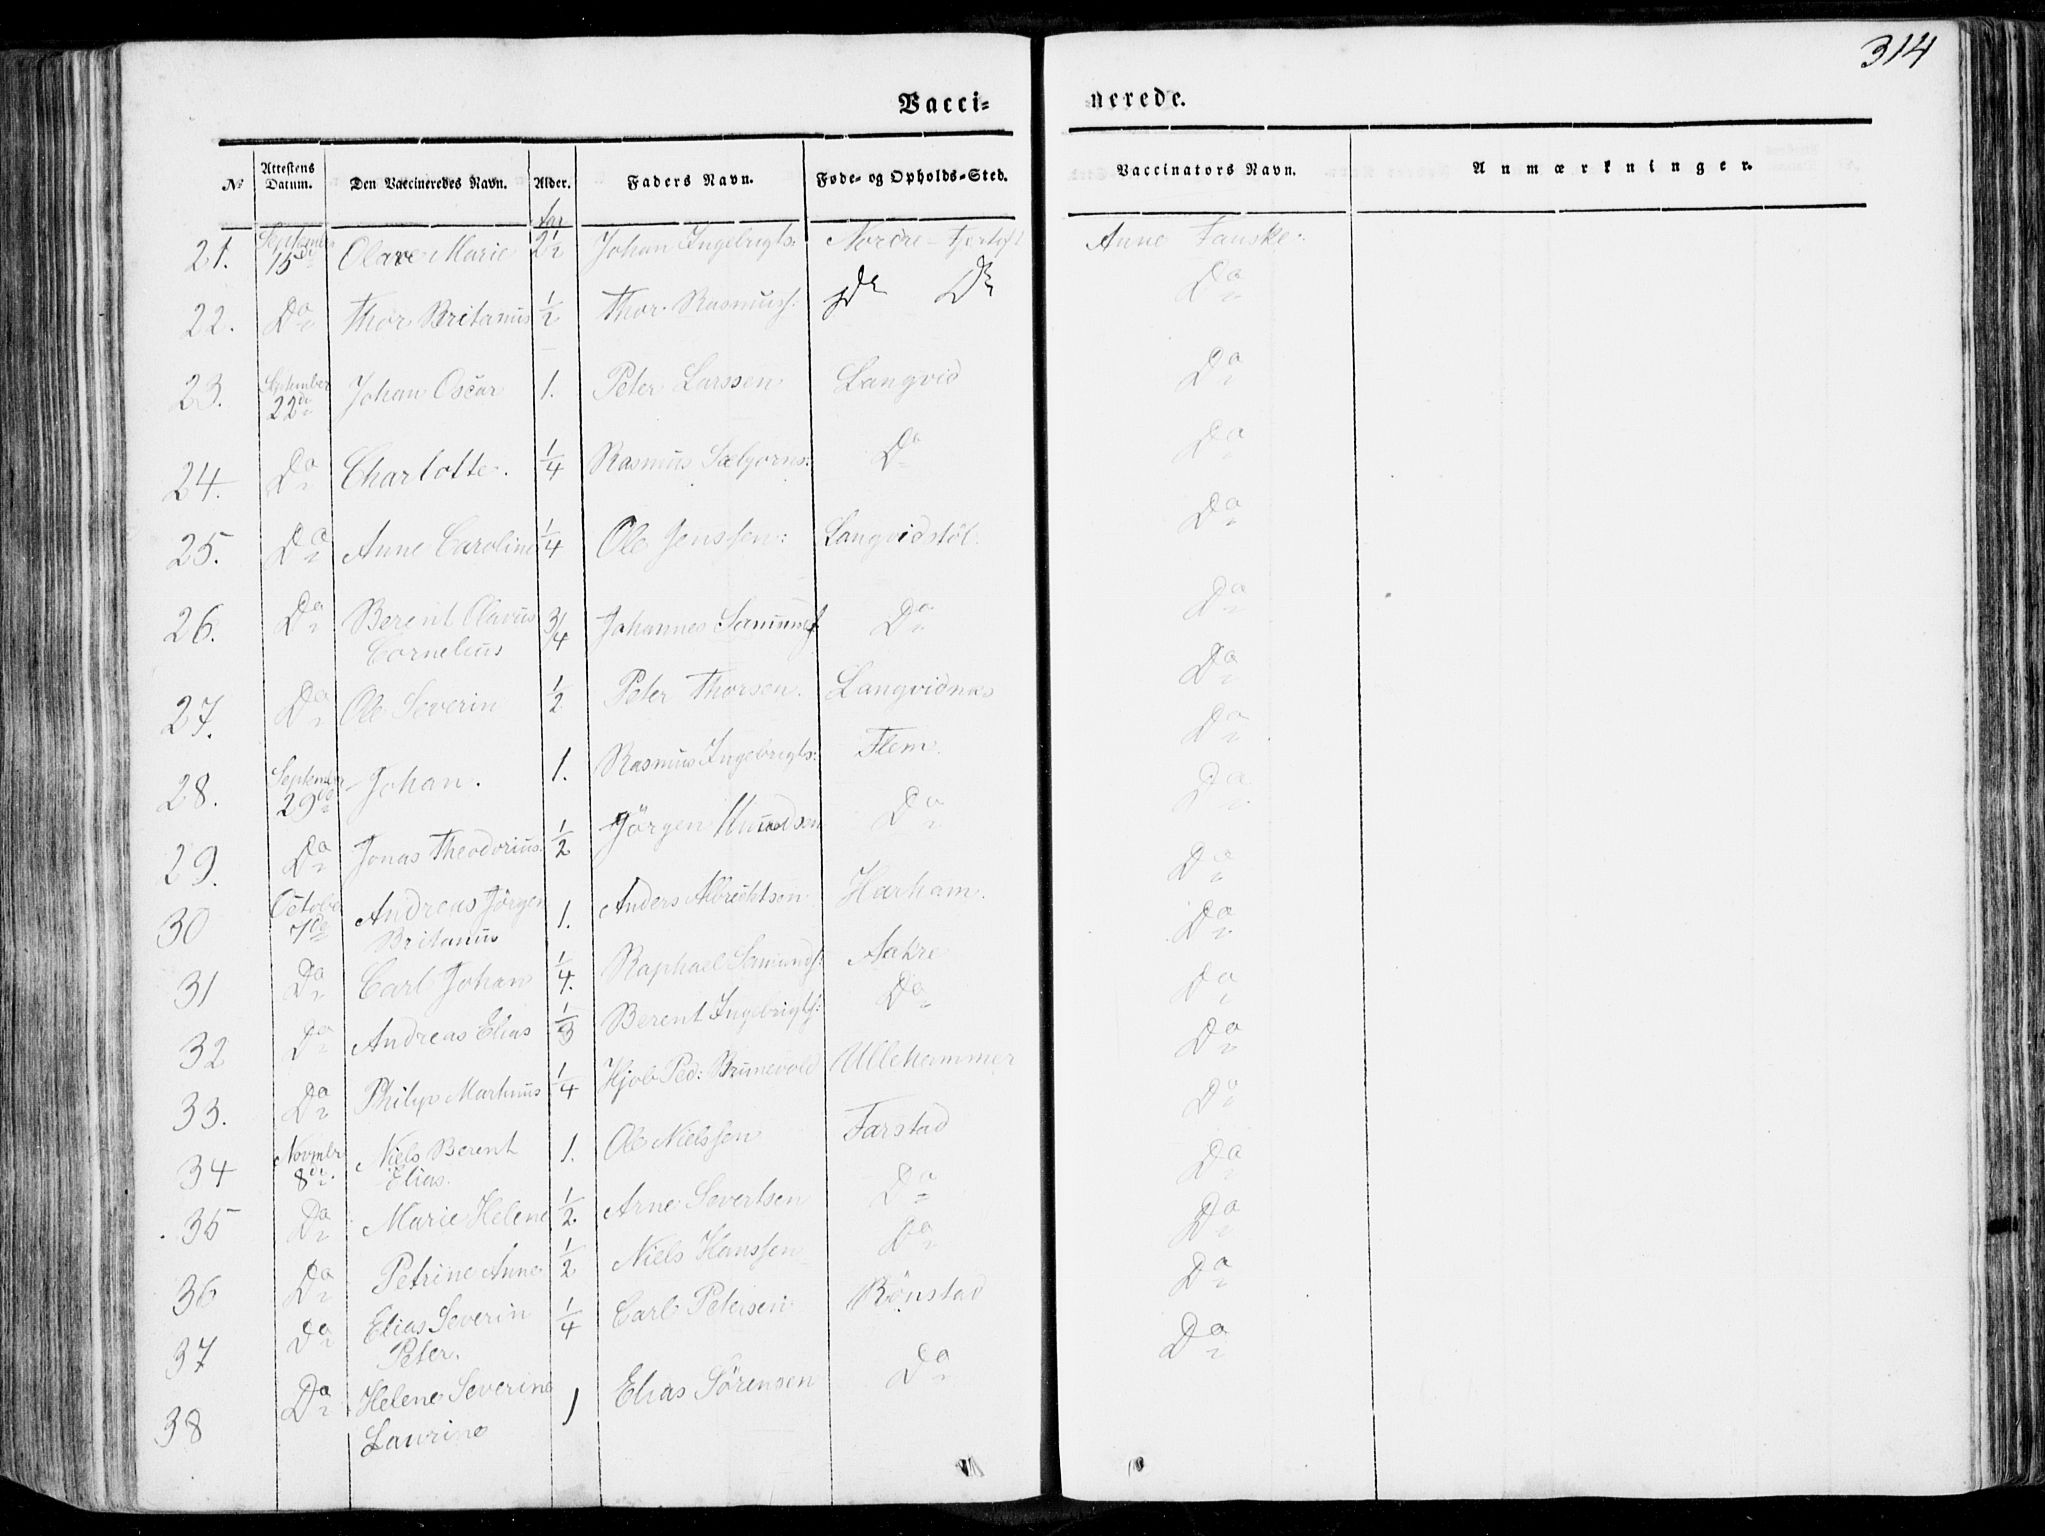 314
Vacci- nerede.
No Attestens Datum. Den Vaccineredes Navn. Alder. Faders Navn. Føde- og Opholds-Sted. Vaccinators Navn. Anmærkninger.
21. September 15de Olave Marie 2½ Johan Ingebrigts: Nordre Fjertoft Anne Fauske.
22. Do Thor Britanus ½ Thor Rasmuss. Do Do Do
23. September 22de Johan Oscar 1. Peter Larssen Langvid Do
24. Do Charlotte. ¼ Rasmus Sæbjørns: Do Do
25. Do Anne Caroline ¼ Ole Jenssen: Langvidstöl. Do
26. Do Berent Olavus 3/4 Johannes Samuels Do Do
Cornelius
27. Do Ole Severin ½ Peter Thorsen. Langvidnæs Do
28. September 29de Johan. 1. Rasmus Ingebrigts: Flem. Do
29. Do Jonas Theodorius ½ Jörgen Knudsen Do Do
30 October 7de Andreas Jörgen 1. Anders Albrechtsen Harham. Do
Britanus
31 Do Carl Johan ¼. Raphael Samunds: Aakre Do
32 Do Andreas Elias ⅓ Berent Ingebrigts: Do Do
33. Do Philip Martinus ¼ Hjob Ped: Brunevold Ullehammer Do
34 Novmbr 8de. Niels Berent 1. Ole Nielssen Farstad Do
Elias.
35 Do Marie Helene ½. Arne Severtsen Do Do
36 Do Petrine Anne ½ Niels Hanssen Do Do
37 Do Elias Severin ¼ Carl Petersen Rönstad Do
Peter.
38 Do Helene Severine 1 Elias Sörensen Do Do
Laurine